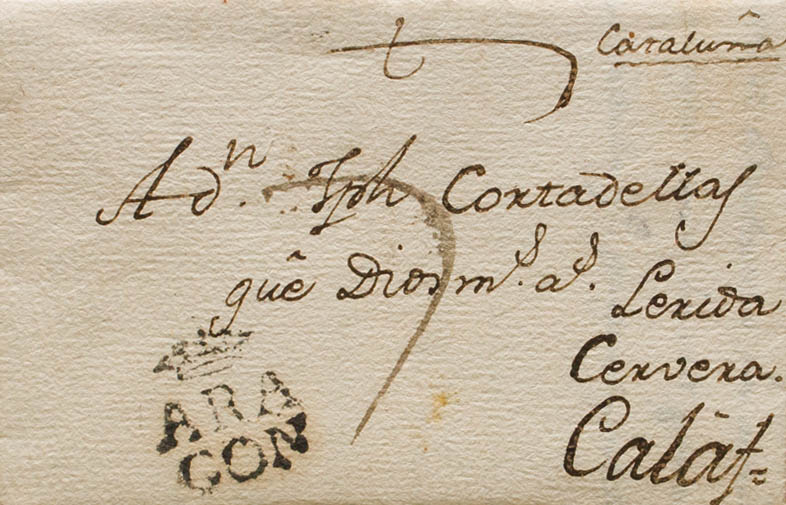 Cataluña
A dn. Jph Cortadellas
guê Dios ms. as.
Lerida
Cervera.
Calàf=
ARA
GON